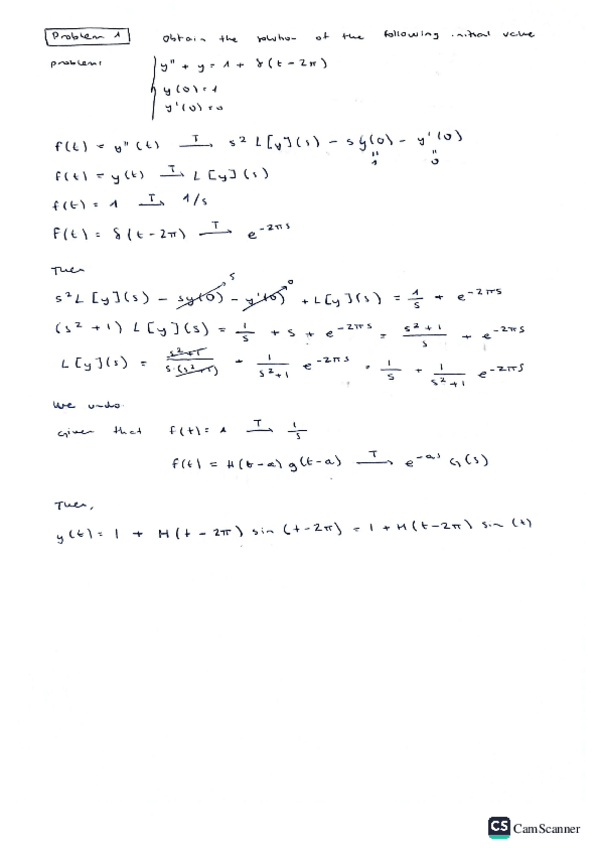 Problem 1 Obtain the solution of the following initial value
problem:
y'' + y = 1 + δ(t-2π)
y(0) = 1
y'(0) = 0
f(t) = y''(t) —T→ s² L[y](s) - s y(0) - y'(0)
" "
1 0
f(t) = y(t) —T→ L[y](s)
f(t) = 1 —T→ 1/s
f(t) = δ(t-2π) —T→ e^{-2πs}
Then
s² L[y](s) - sy(0) - y'(0) + L[y](s) = 1/s + e^{-2πs}
s 0
(s²+1) L[y](s) = 1/s + s + e^{-2πs} = (s²+1)/s + e^{-2πs}
L[y](s) = (s²+1)/(s·(s²+1)) + 1/(s²+1) e^{-2πs} = 1/s + 1/(s²+1) e^{-2πs}
We undo.
Given that f(t) = 1 —T→ 1/s
f(t) = H(t-a) g(t-a) —T→ e^{-as} G(s)
Then,
y(t) = 1 + H(t-2π) sin(t-2π) = 1 + H(t-2π) sin(t)
CS CamScanner